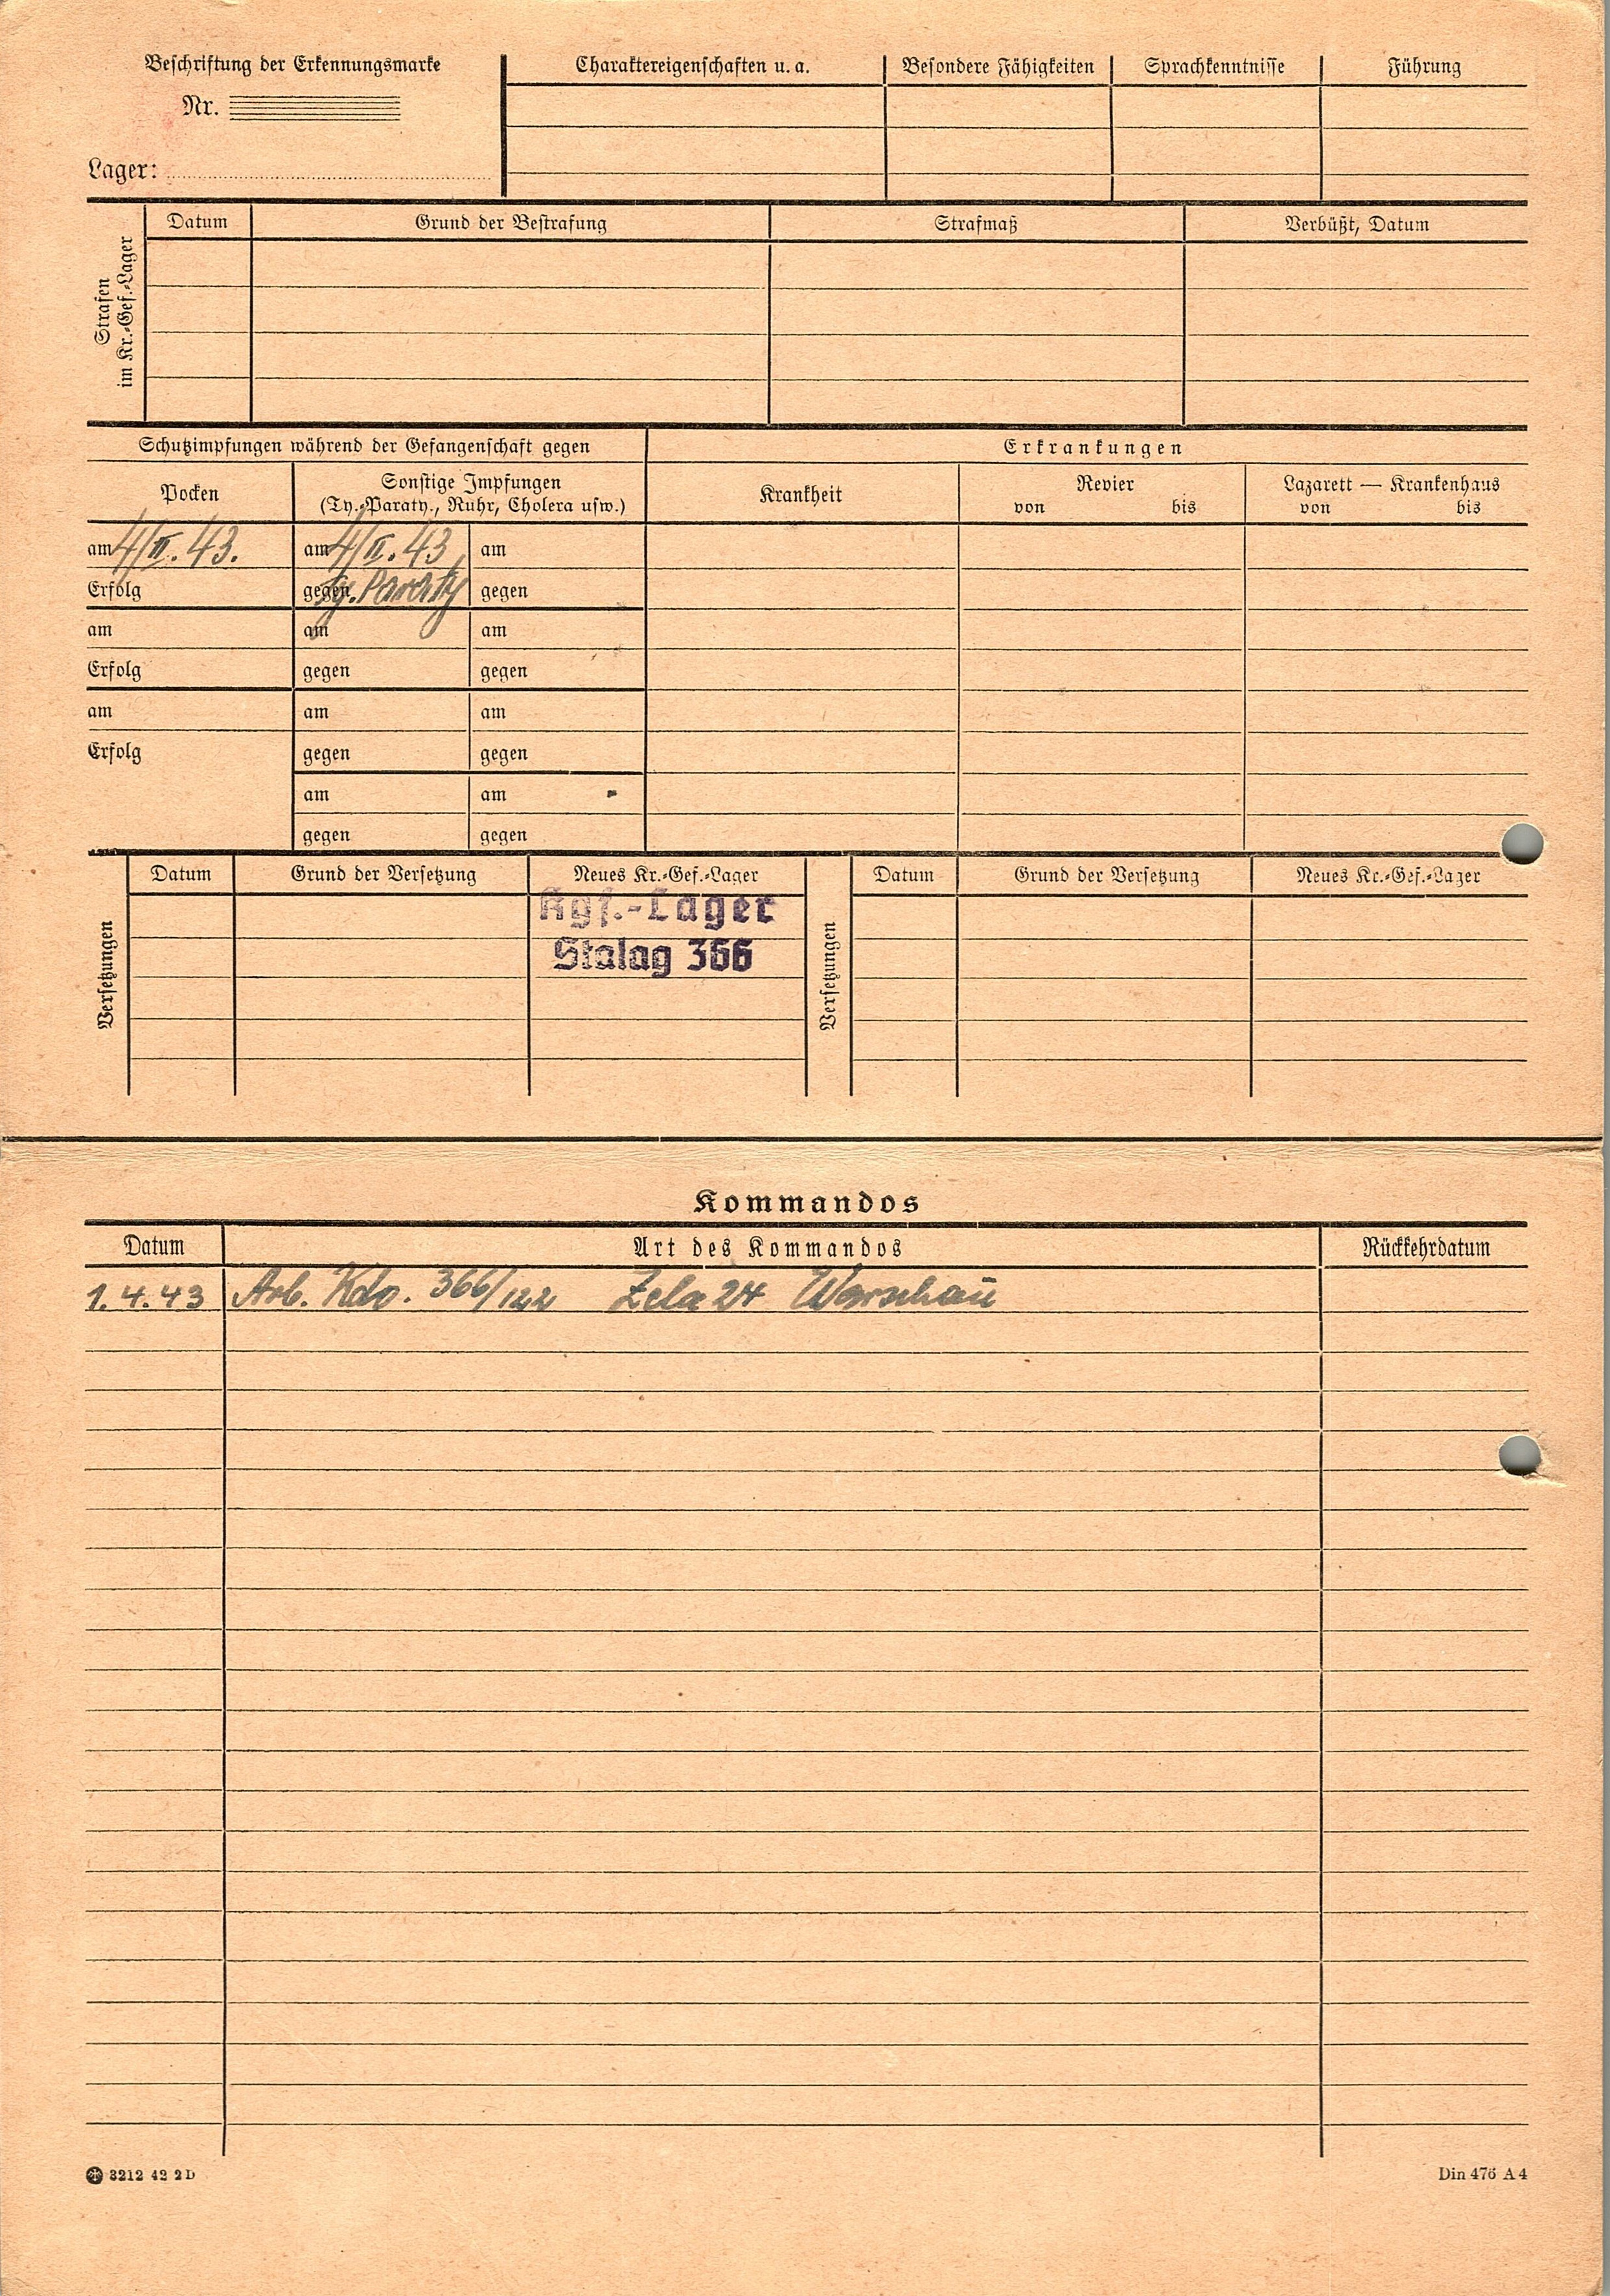 Beschriftung der Erkennungsmarke
Nr.
Lager:
Charaktereigenschaften u. a.
Besondere Fähigkeiten
Sprachkenntnisse
Führung
Strafen
im Kr.-Gef.-Lager
Datum
Grund der Bestrafung
Strafmaß
Verbüßt, Datum
Schutzimpfungen während der Gefangenschaft gegen
Erkrankungen
Pocken
Sonstige Impfungen
(Ty.-Paraty., Ruhr, Cholera usw.)
Krankheit
Revier
von bis
Lazarett — Krankenhaus
von bis
am 4/II.43. am 4/II.43 am
Erfolg gegen Ty.Paraty gegen
am am am
Erfolg gegen gegen
am am am
Erfolg gegen gegen
am am
gegen gegen
Versetzungen
Datum
Grund der Versetzung
Neues Kr.-Gef.-Lager
Kgf.-Lager
Stalag 366
Versetzungen
Datum
Grund der Versetzung
Neues Kr.-Gef.-Lager
Kommandos
Datum Art des Kommandos Rückkehrdatum
1.4.43 Arb. Kdo. 366/122 Zela 24 Warschau
3212 42 2D
Din 476 A 4